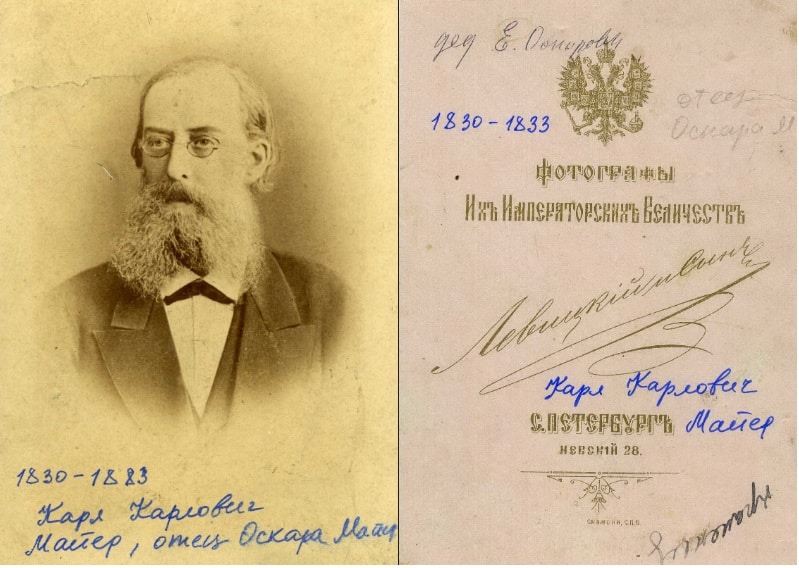 1830-1883
Карл Карлович
Майер, отец Оскара Майе
дед Е. Оскаровн
1830-1833
отец
Оскара М
Фотографы
Ихъ Императорскихъ Величествъ
Левицкій и Сынъ
Карл Карлович
С. ПЕТЕРБУРГЪ Майер
НЕВСКІЙ 28.